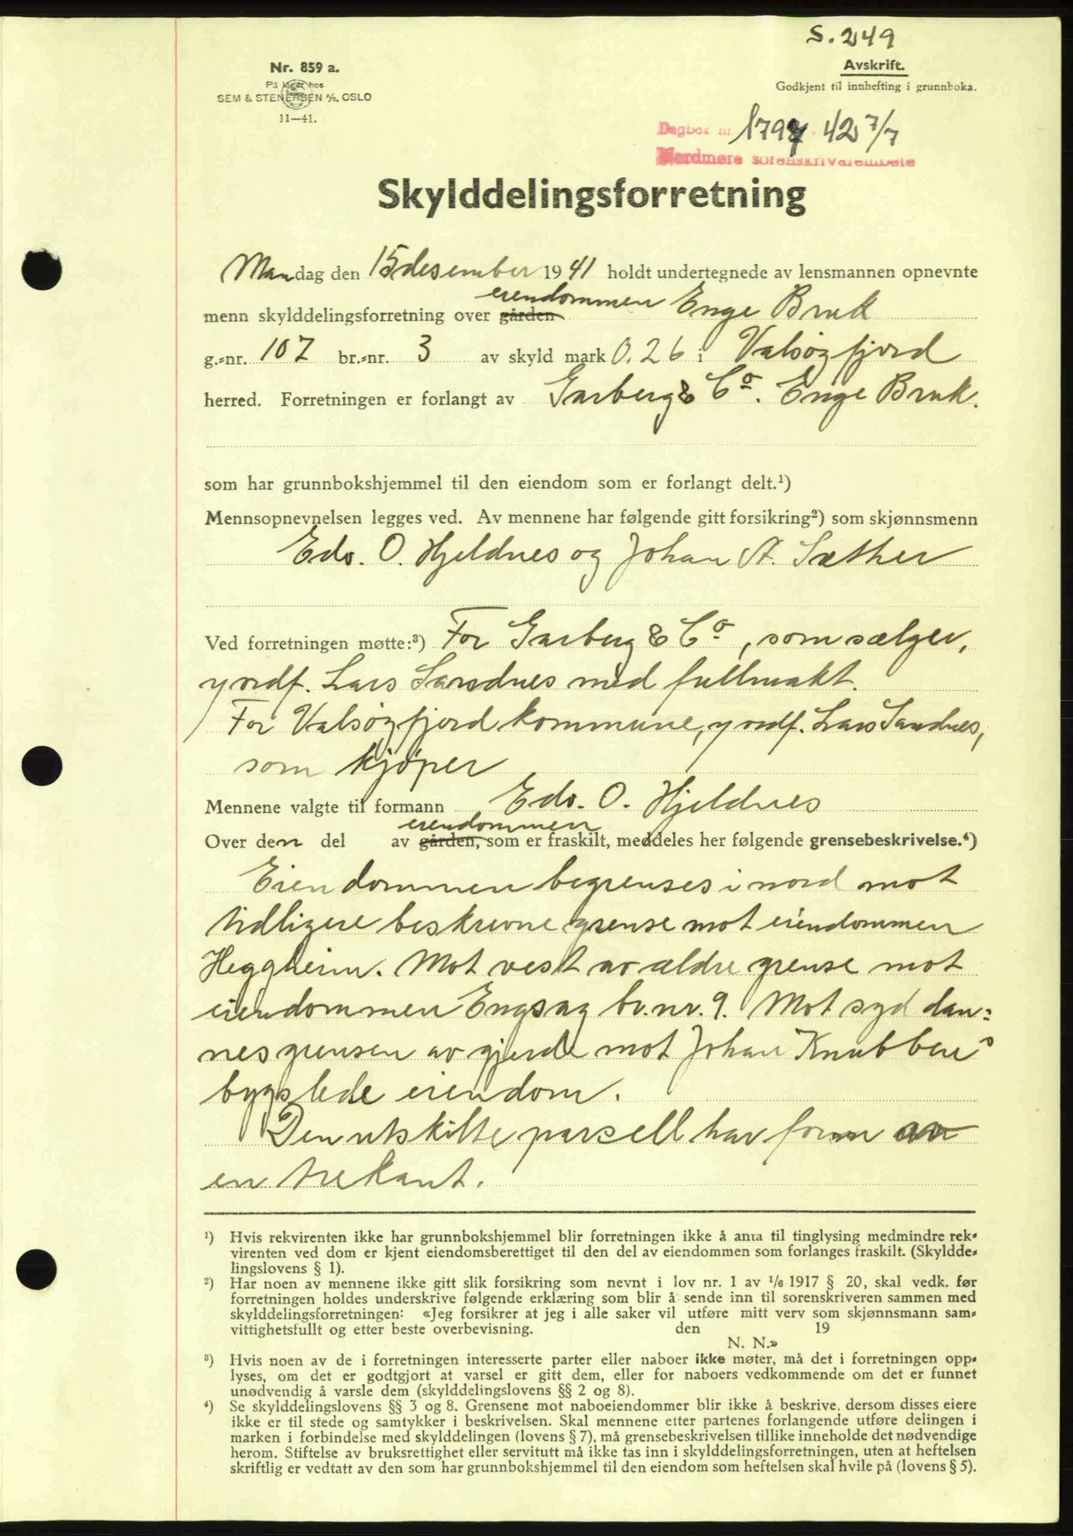 S. 249
Nr. 859 a.
På lager hos
SEM & STENERSEN A/S, OSLO
11—41.
Avskrift.
Godkjent til innhefting i grunnboka.
Dagbok nr 1797 42 7/7
Nordmøre sorenskriverembete
Skylddelingsforretning
Mandag den 15 desember 1941 holdt undertegnede av lensmannen opnevnte
eiendommen
menn skylddelingsforretning over gården Enge Bruk
g.-nr. 107 br.-nr. 3 av skyld mark 0,26 i Valsøyfjord
herred. Forretningen er forlangt av Garberg & Co. Enge Bruk.
som har grunnbokshjemmel til den eiendom som er forlangt delt.¹)
Mennsopnevnelsen legges ved. Av mennene har følgende gitt forsikring²) som skjønnsmenn
Edv. O. Hjeldnes og Johan A. Sæther
Ved forretningen møtte:³) For Garberg & Co, som sælger,
v. ordf. Lars Sandnes med fullmakt.
For Valsøyfjord kommune, v ordf. Lars Sandnes,
som kjøper
Mennene valgte til formann Edv. O. Hjeldnes
eiendommen
Over den del av gården, som er fraskilt, meddeles her følgende grensebeskrivelse.⁴)
Eiendommen begrenses i nord mot
tidligere beskrevne grense mot eiendommen
Heggheim. Mot vest av ældre grense mot
eiendommen Engsag br.nr. 9. Mot syd dan-
nes grensen av gjerde mot Johan Knubbens
bygslede eiendom.
Den utskilte parsell har form av
en trekant.
¹) Hvis rekvirenten ikke har grunnbokshjemmel blir forretningen ikke å anta til tinglysing medmindre rek-
virenten ved dom er kjent eiendomsberettiget til den del av eiendommen som forlanges fraskilt. (Skyldde-
lingslovens § 1).
²) Har noen av mennene ikke gitt slik forsikring som nevnt i lov nr. 1 av 1/6 1917 § 20, skal vedk. før
forretningen holdes underskrive følgende erklæring som blir å sende inn til sorenskriveren sammen med
skylddelingsforretningen: «Jeg forsikrer at jeg i alle saker vil utføre mitt verv som skjønnsmann sam-
vittighetsfullt og etter beste overbevisning. den 19
N. N.»
³) Hvis noen av de i forretningen interesserte parter eller naboer ikke møter, må det i forretningen opp-
lyses, om det er godtgjort at varsel er gitt dem, eller for naboers vedkommende om det er funnet
unødvendig å varsle dem (skylddelingslovens §§ 2 og 8).
⁴) Se skylddelingslovens §§ 3 og 8. Grensene mot naboeiendommer blir ikke å beskrive, dersom disses eiere
ikke er til stede og samtykker i beskrivelsen. Skal mennene etter partenes forlangende utføre delingen i
marken i forbindelse med skylddelingen (lovens § 7), må grensebeskrivelsen tillike inneholde det nødvendige
herom. Stiftelse av bruksrettighet eller servitutt må ikke tas inn i skylddelingsforretningen, uten at heftelsen
skriftlig er vedtatt av den som har grunnbokshjemmel til den eiendom som heftelsen skal hvile på (lovens § 5).